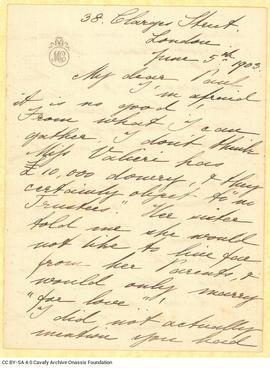 38. Clarges Street.
London
June 5th 1903
My dear Paul
I'm afraid
it is no good!
From what I can
gather I don't think
Miss Valieri has
£10,000 dowery, & they
certainly object to no
Trustees. Her sister
told me she would
not like to live far
from her Parents, &
would only marry
"for love"!
I did not actually
mention you had
CC BY-SA 4.0 Cavafy Archive Onassis Foundation